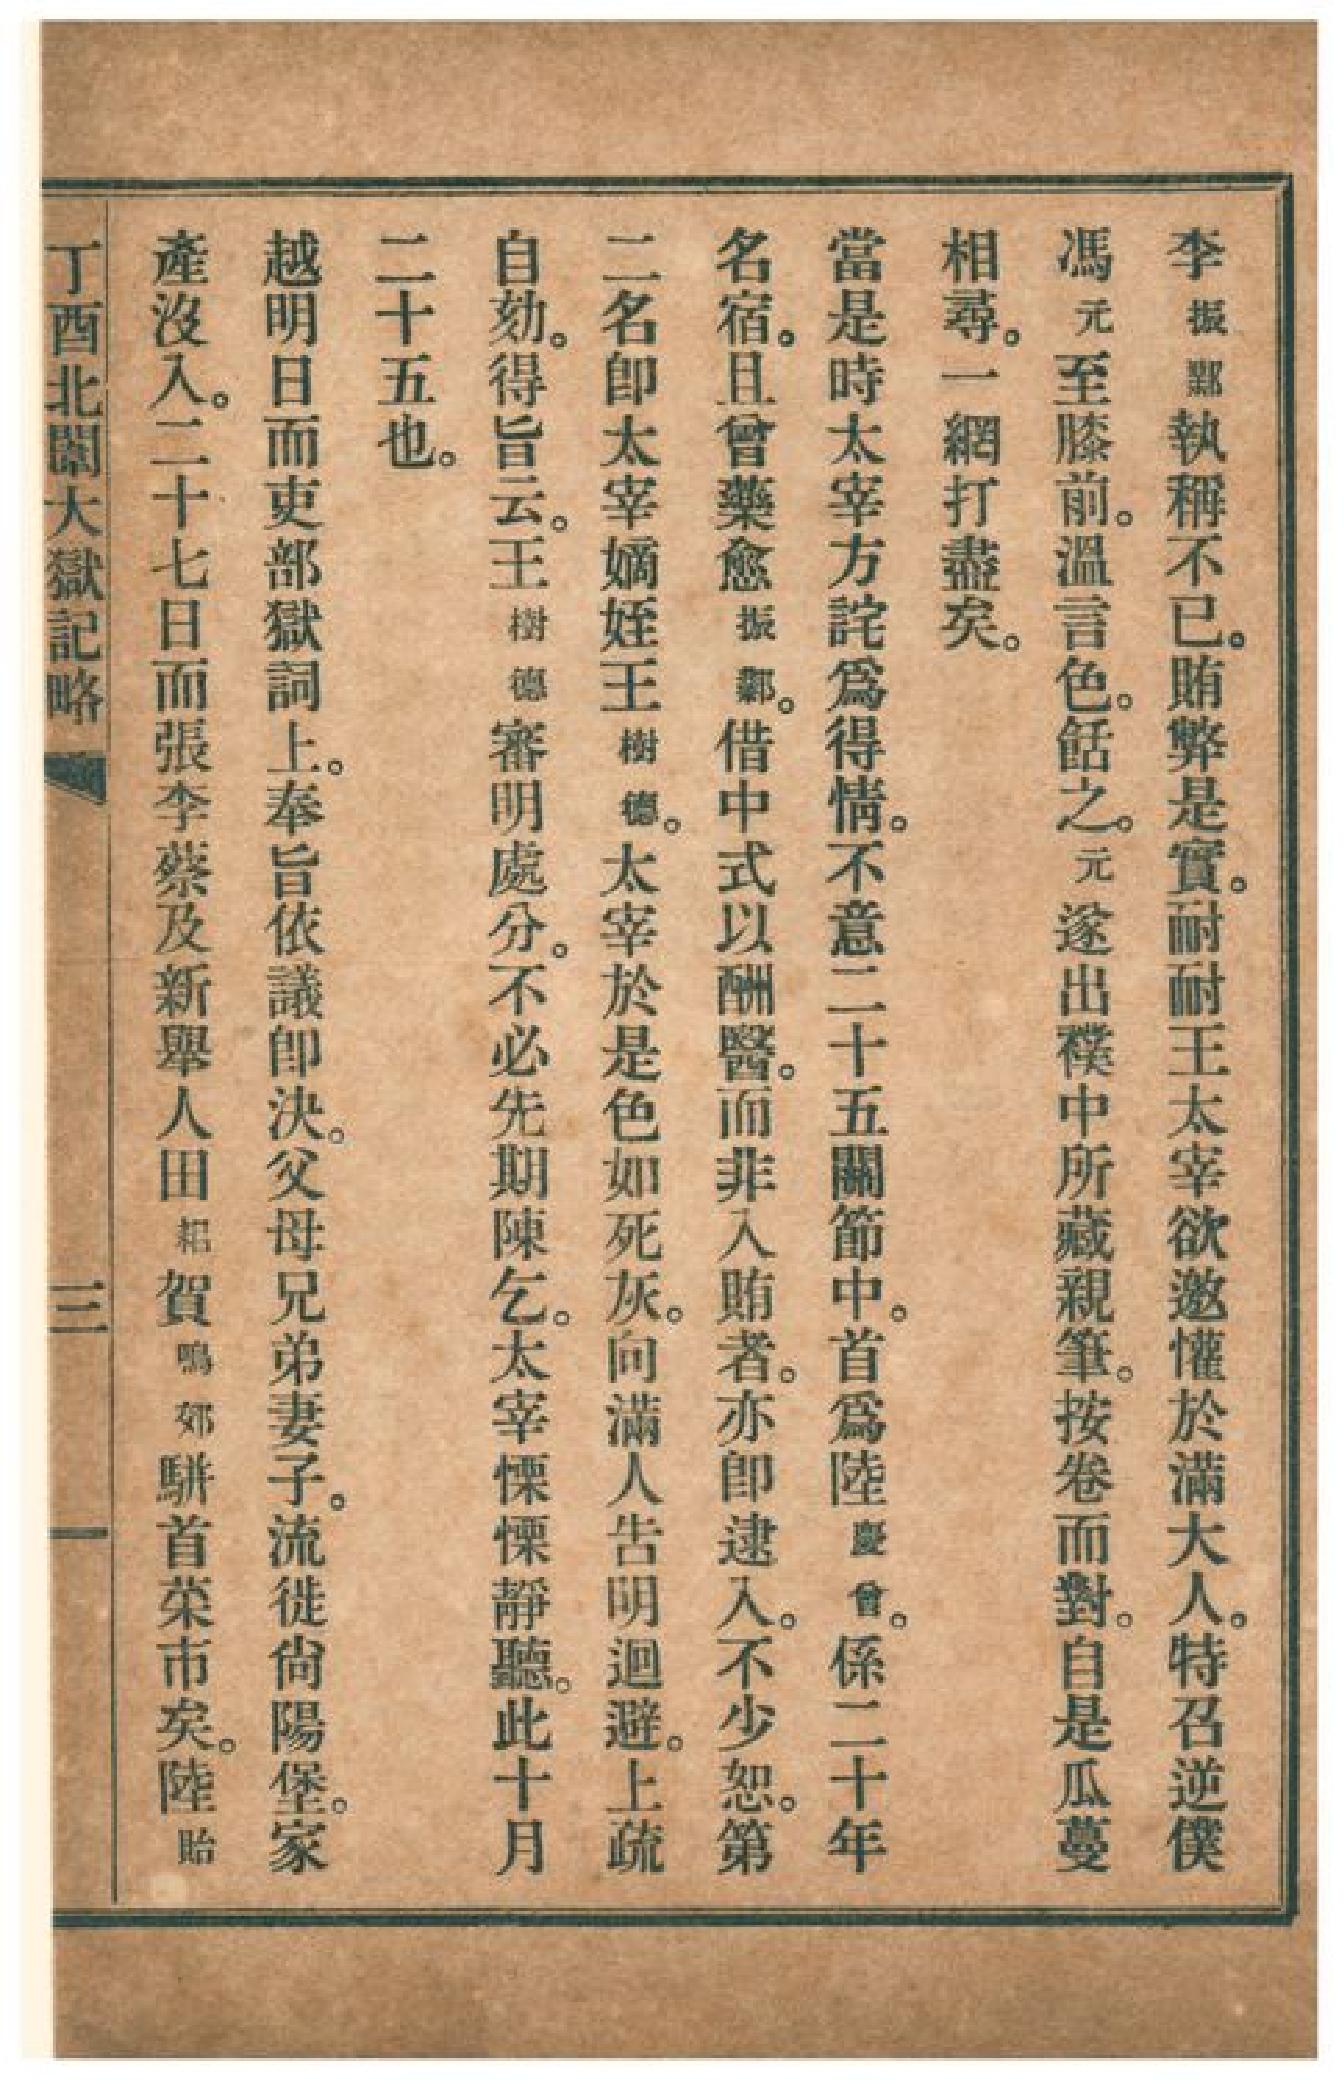 李振鄴執稱不已。賄弊是實。耐耐王太宰欲邀懽於滿大人。特召逆僕
馮元至膝前。溫言色。餂之。元遂出襆中所藏親筆。按卷而對。自是瓜蔓
相尋。一網打盡矣。
當是時太宰方詫爲得情。不意二十五關節中。首爲陸慶曾。係二十年
名宿。且曾藥愈振鄴。借中式以酬醫。而非入賄者。亦卽逮入。不少恕。第
二名卽太宰嫡姪王樹德。太宰於是色如死灰。向滿人吿明迴避。上疏
自劾。得旨云。王樹德審明處分。不必先期陳乞。太宰慄慄靜聽。此十月
二十五也。
越明日而吏部獄詞上。奉旨依議卽決。父母兄弟妻子。流徙尙陽堡。家
產沒入。二十七日而張李蔡及新舉人田耜賀鳴郊駢首菜市矣。陸貽
丁酉北闈大獄記略
三